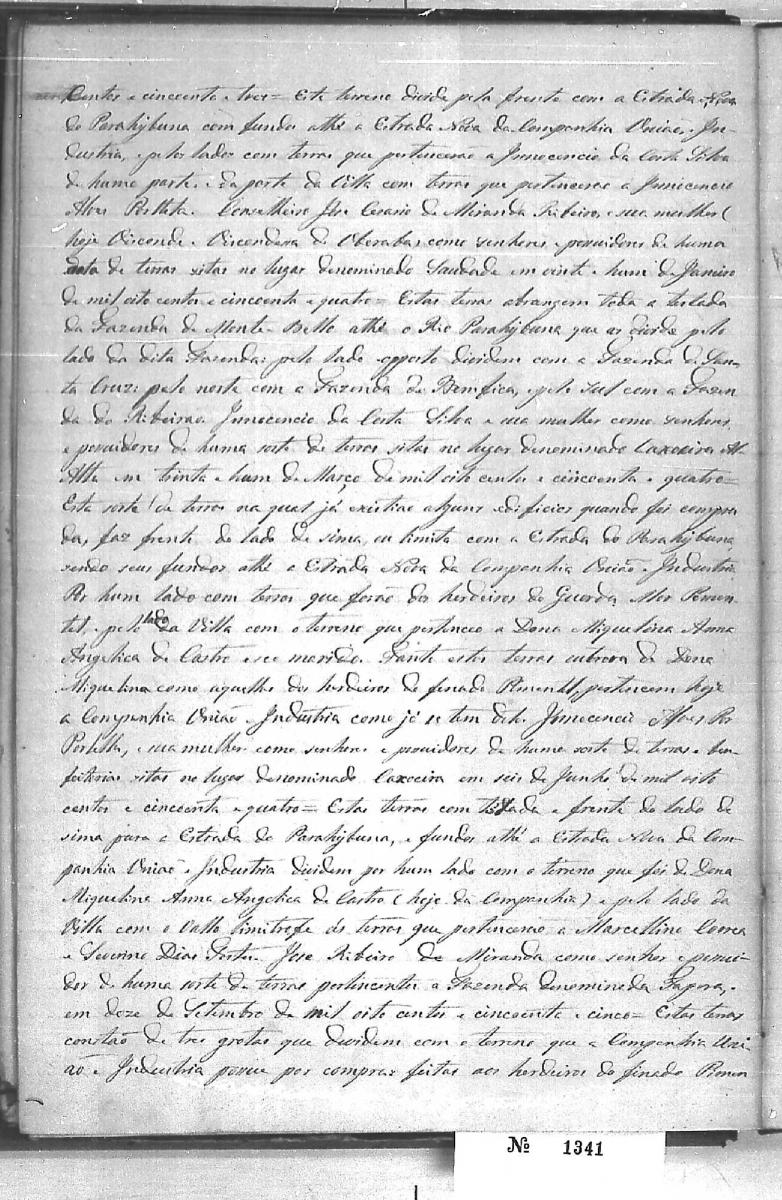 Centos e cincoenta e tres = Este terreno divide pela frente com a Estrada Nova
do Parahybuna com fundos athé a Estrada Nova da Companhia União e In-
dustria, e pelos lados com terras que pertencerão a Innocencio da Costa Silva
de huma parte e da parte da Villa com terras que pertencerão a Innocencio
Alves Portella. Conselheiro José Cesario de Miranda Ribeiro, e sua mulher (
hoje Visconde e Viscondeza de Uberaba) como senhores e possuidores de huma
data de terras sitas no lugar denominado Saudade em vinte e hum de Janeiro
de mil oito centos e cincoenta e quatro = Estas terras abrangem toda a testada
da Fazenda de Monte-Bello athé o Rio Parahybuna que as divide pelo
lado da dita Fazenda: pelo lado opposto dividem com a Fazenda de San-
ta Cruz: pelo norte com a Fazenda de Bemfica, e pelo sul com a Fazen
da do Ribeirão. Innocencio da Costa Silva e sua mulher como senhores
e possuidores de huma sorte de terras sitas no lugar denominado Caxoeira Al-
Alta em trinta e hum de Março de mil oito centos e cincoenta e quatro =
Esta sorte de terras na qual já existião alguns edificios quando foi compra
da, faz frente do lado de sima, ou limita com a Estrada do Parahybuna,
sendo seus fundos athé a Estrada Nova da Companhia União e Industria
Por hum lado com terras que forão dos herdeiros do Guarda Mor Pimen-
tel, e pelo lado da Villa com o terreno que pertenceo a Dona Miguelina Anna
Angelica de Castro e seo marido. Tanto estes terras outrora de Dona
Miguelina como aquellas dos herdeiros do finado Pimentel, pertencem hoje
a Companhia União e Industria como já se tem dito. Innocencio Alves Por
Portella, e sua mulher como senhores e possuidores de huma sorte de terras e bem
feitorias sitas no lugar denominado Caxoeira em seis de Junho de mil oito
centos e cincoenta e quatro = Estas terras com testada e frente do lado de
sima para a Estrada do Parahybuna, e fundos athé a Estrada Nova da Com-
panhia União e Industria dividem por hum lado com o terreno que foi de Dona
Miguelina Anna Angelica de Castro (hoje da Companhia) e pelo lado da
Villa com o Vallo limitrofe ás terras que pertencerão a Marcellino Correa
e Severino Dias Fortes. José Ribeiro de Miranda como senhor e possui-
dor de huma sorte de terras pertencentes a Fazenda denominada Tapera, e
em doze de Setembro de mil oito centos e cincoenta e cinco = Estas terras
constão de tres grotas que dividem com o terreno que a Companhia Uni-
ão e Industria possue por compras feitas aos herdeiros do finado Pimen
Nº 1341